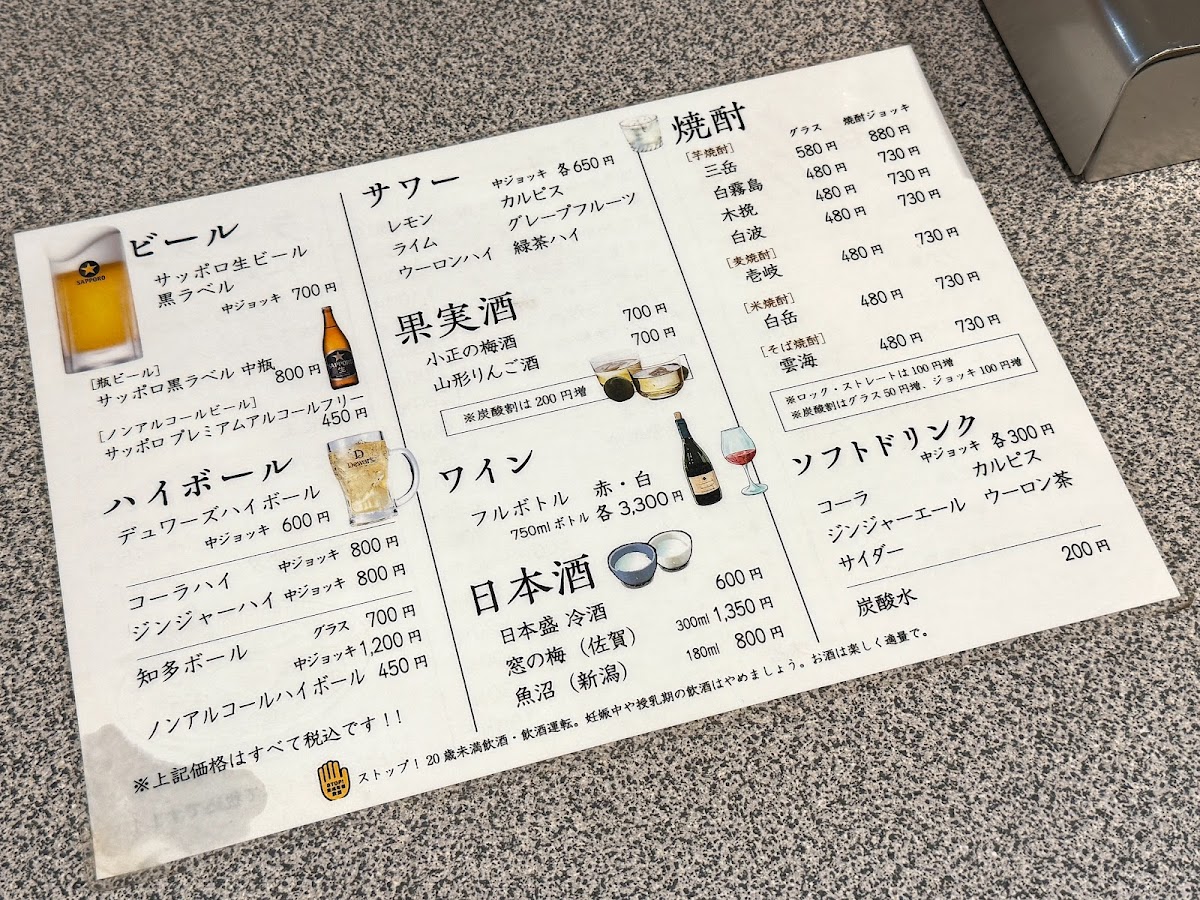 ビール
SAPPORO
サッポロ生ビール
黒ラベル
中ジョッキ 700円
[瓶ビール]
サッポロ黒ラベル 中瓶 800円
SAPPORO
生
[ノンアルコールビール]
サッポロプレミアムアルコールフリー
450円
ハイボール
D
Dewar's
デュワーズハイボール
中ジョッキ 600円
コーラハイ 中ジョッキ 800円
ジンジャーハイ 中ジョッキ 800円
知多ボール グラス 700円
中ジョッキ 1,200円
ノンアルコールハイボール 450円
※上記価格はすべて税込です!!
サワー 中ジョッキ 各650円
レモン カルピス
ライム グレープフルーツ
ウーロンハイ 緑茶ハイ
果実酒
小正の梅酒 700円
山形りんご酒 700円
※炭酸割は200円増
ワイン
フルボトル 赤・白
750mlボトル 各3,300円
日本酒
日本盛 冷酒 600円
窓の梅(佐賀) 300ml 1,350円
魚沼(新潟) 180ml 800円
焼酎
グラス 焼酎ジョッキ
[芋焼酎]
三岳 580円 880円
白霧島 480円 730円
木挽 480円 730円
白波 480円 730円
[麦焼酎]
壱岐 480円 730円
[米焼酎]
白岳 480円 730円
[そば焼酎]
雲海 480円 730円
※ロック・ストレートは100円増
※炭酸割はグラス50円増、ジョッキ100円増
ソフトドリンク
中ジョッキ 各300円
コーラ カルピス
ジンジャーエール ウーロン茶
サイダー
炭酸水 200円
STOP!
ストップ!20歳未満飲酒・飲酒運転。妊娠中や授乳期の飲酒はやめましょう。お酒は楽しく適量で。